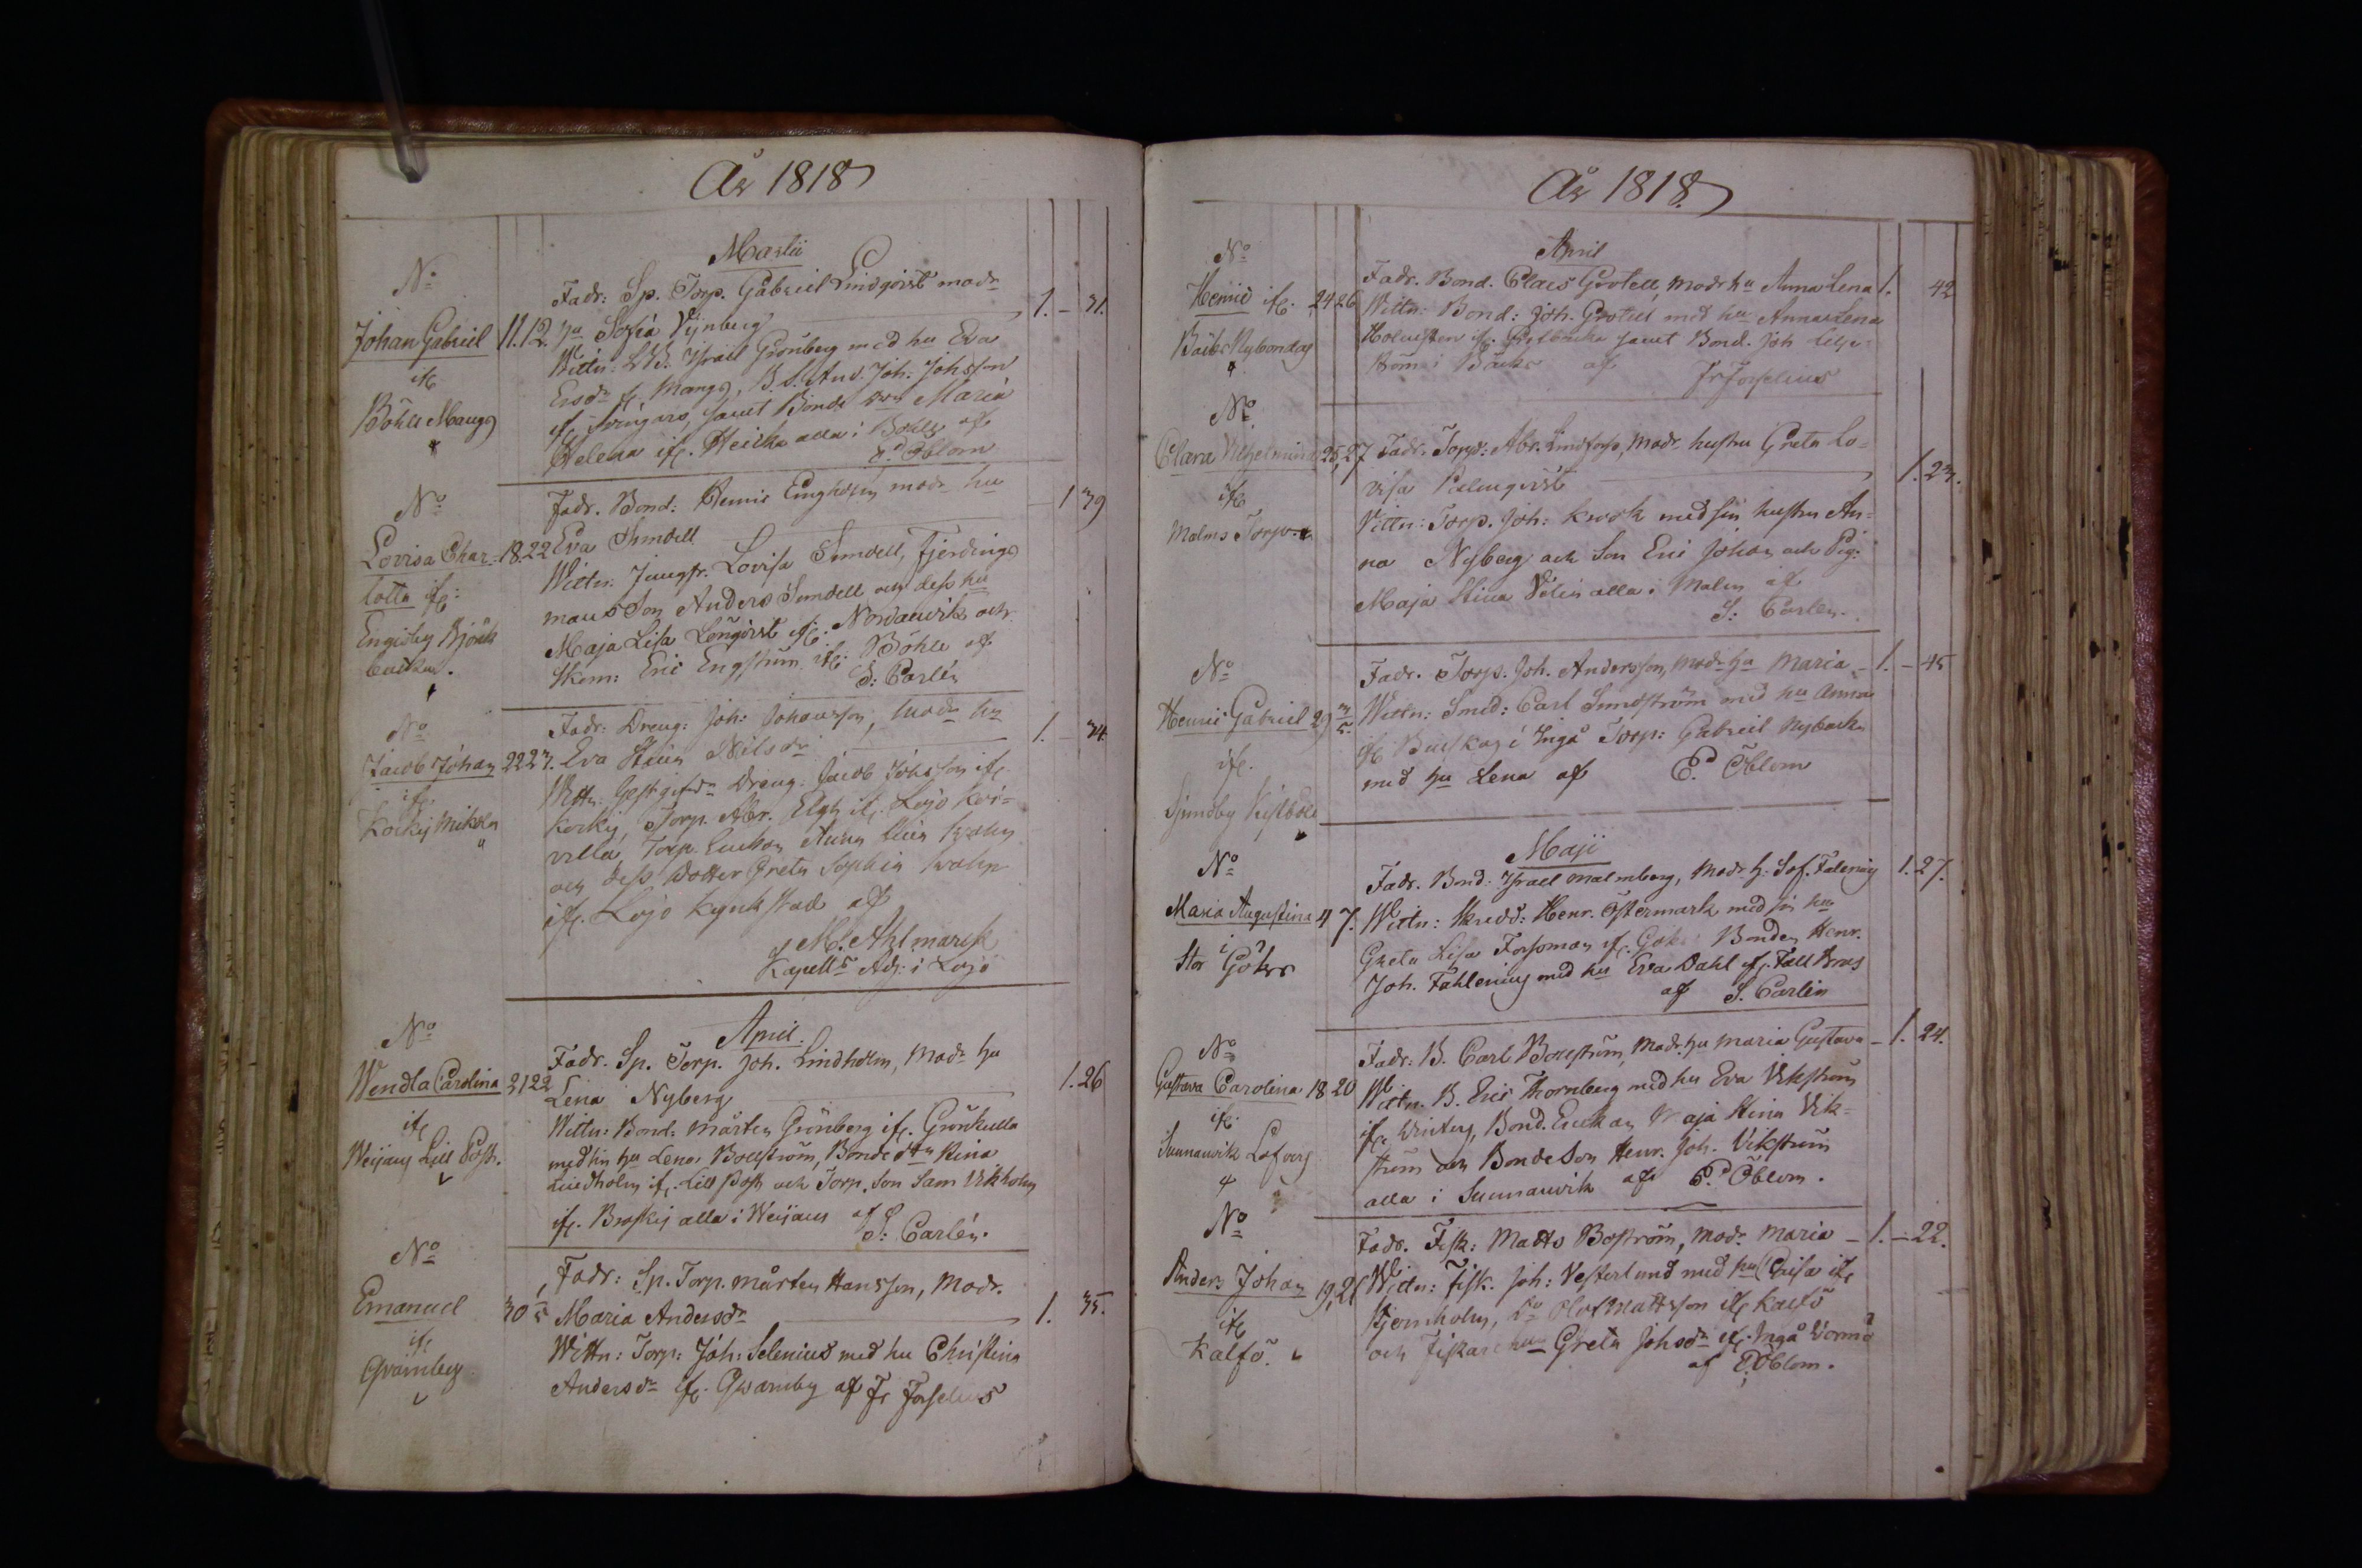 År 1818
Martii
No
Johan Gabriel
ifr.
Böhle Mangs
11. 12.
Fadr: Sp. Torp. Gabriel Lindqvist modr
hu Sofia Vijnberg
Wittn: Israel Grönberg med hu Eva
Ersdr fr. Mangs, B. S. And. Joh: Johsson
ifr. samt Bonde Maria
Helena ifr. Heikka alla i Böhle af
P. Öblom
1. – 31.
No
Lovisa Char-
lotta ifr:
Engisby Björk
backa.
18. 22
Fadr. Bond: Henric Engholm modr hu
Eva Sundell
Wittn: Jungfr. Lovisa Sundell, Fjerdings
mans Son Anders Sundell och dess hu
Maja Lisa Löngvist ifr. Nordanvik och
Skom: Eric Engström ifr: Böhle af
S: Carlén
1 39
No
Jacob Johan
ifr.
Korkij Mikola
22 27.
Fadr: Dreng: Joh: Johansson, modr hu
Eva Stina Nilsdr
Wittn: Dreng. Jacob Johsson ifr.
Korkij, Torp. Abr. Elgh ifr. Lojo Koi-
villa, Torp. Enkan Anna Stina
och dess Dotter Greta Sophia
ifr. Lojo Kynkstad af
M. Ahlmarck
Kapells Adj: i Lojo
1. – 34.
April.
No
Wendla Carolina
ifr
Weijans Lill Post.
21 22
Fadr. Sp. Torp. Joh. Lindholm, Modr hu
Lena Nyberg
Wittn: Bond: Mårten Grönberg ifr. Grönkulla
med sin hu Lena Bollström, Bondedtr Stina
Lindholm ifr. Lill Post och Torp. Son Sam Vikholm
ifr. Broskij alla i Weijans af
S: Carlén.
1. 26
No
Emanuel
ifr
Gvarnbey
30
Fadr: Sp. Torp. Mårten Hansson, Modr.
Maria Andersdr
Wittn: Torp: Joh: Selenius med hu Christina
Andersdr ifr. Qvarnby af Fr Forselius
1. 35.
År 1818.
April
No
Henric ifr.
Bäcks Nybondas
24 26
Fadr. Bond. Claes Grotell, Modr hu Anna Lena
Wittn: Bond: Joh. Grotell med hu Anna Lena
Holmsten ifr. samt Bond. Joh Lilje-
ström i Bäcks af Fr Forselius
1. 42
No
Clara Vilhelmina
ifr
Malms Torp
25, 27
Fadr. Torp: Abr. Lindfors, Modr hustru Greta Lo-
visa Palmqvist
Wittn: Torp. Joh: Krook med sin hustru An-
na Nyberg och Son Eric Johan och Pig:
Maja Stina Velin alla i Malm af
S: Carlén.
1. 23.
No
Henric Gabriel
ifr.
Sjundby Kistböle
29
Fadr. Torp. Joh. Andersson, Modr hu Maria
Wittn: Smed: Carl Sundström med hu Anna
ifr i Ingå Torp: Gabriel Nybacka
med hu Lena af P. Öblom
1. – 45
Maji
No
Maria Augustina
i
Stor Göhrs
4 7.
Fadr. Bond: Israel Malmberg, Modr h: Sof. Falenius
Wittn: Skrädd: Henr. Östermark med sin hu
Greta Lisa Forssman ifr. Göhrs Bonden Henr.
Joh. Fahlenius med hu Eva Dahl ifr. Fall Brus
af S. Carlén
1. 27.
No
Gustava Carolina
ifr.
Sunnanvik Lofvers
18 20
Fadr: B. Carl Bollström, Modr hu Maria Gustava
Wittn. B. Eric Thornberg med hu Eva Vikström
ifr. Winters, Bond. Enckan Maja Stina Vik-
ström och BondeSon Henr. Joh. Vikström
alla i Sunnanvik af P. Öblom.
1. 24.
No
Anders Johan
ifr
Kalfö.
19, 21
Fadr. Fisk: Matts Boström, Modr. Maria
Wittn: Fisk. Joh: Vesterlund med hu Caisa ifr
Stjernholm, Do Olof Mattsson ifr Kalfö
och Fiskare hu Greta Johsdr ifr. Ingå Vormö
af P. Öblom.
1. – 22.